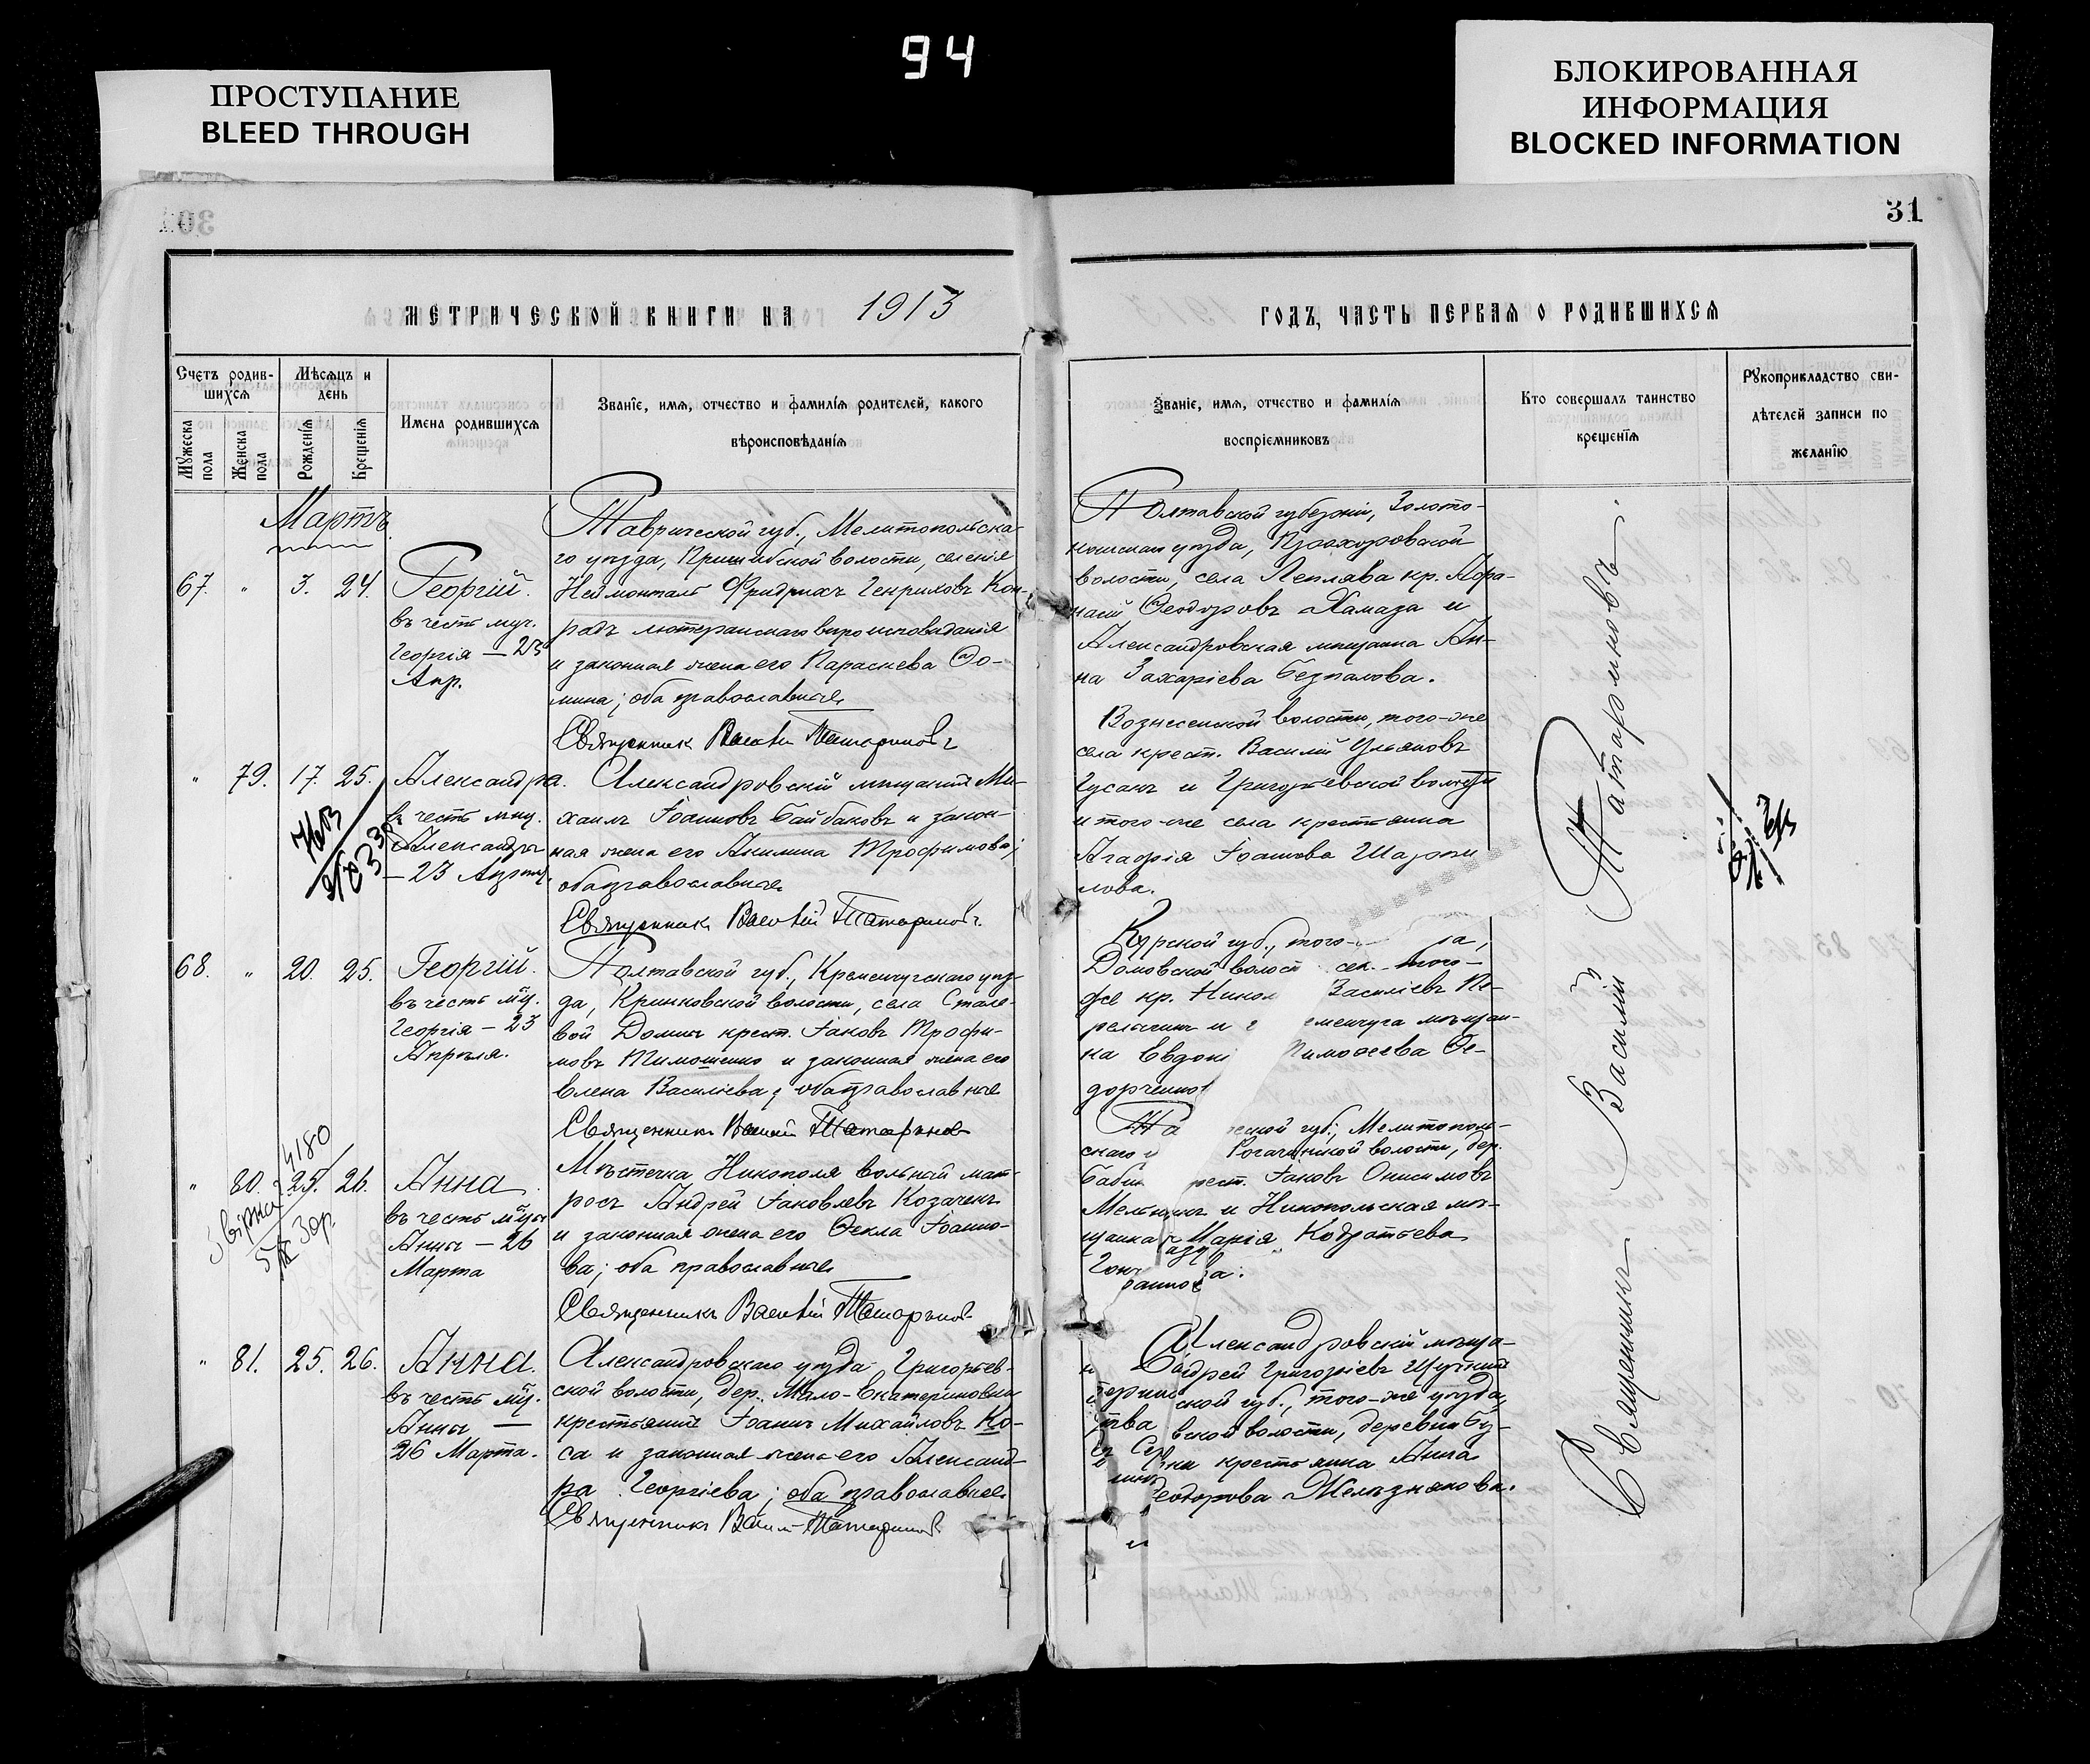 94
ПРОСТУПАНИЕ
BLEED THROUGH
БЛОКИРОВАННАЯ
ИНФОРМАЦИЯ
BLOCKED INFORMATION
31
МЕТРИЧЕСКОЙ КНИГИ НА 1913
ГОДЪ, ЧАСТЬ ПЕРВАЯ О РОДИВШИХСЯ
Счетъ родив-
шихся
Мужеска
пола
Женска
пола
Мѣсяцъ и
день
Рожденія
Крещенія
Имена родившихся
Званіе, имя, отчество и фамилія родителей, какого
вѣроисповѣданія
Званіе, имя, отчество и фамилія
воспріемниковъ
Кто совершалъ таинство
крещенія
Рукоприкладство сви-
дѣтелей записи по
желанію
Мартъ
67. " 3. 24. Георгій.
въ честь муч.
Георгія — 23
Апр.
Таврической губ., Мелитопольска-
го уѣзда, Пришибской волости, селенія
Неймонталь Фридрихъ Генриховъ Кон-
радъ лютеранскаго вѣроисповѣданія
и законная жена его Параскева Ѳо-
мина; оба православные
Священникъ Василій Татариновъ
Полтавской губерніи, Золото-
ношскаго уѣзда, Прохоровской
волости, села Леплява кр. Афа-
насій Ѳеодоровъ Хамаза и
Александровская мѣщанка Ан-
на Захаріева Безпалова.
" 79. 17. 25. Александра.
въ честь мнц.
Александры
— 23 Апрѣл.
Александровскій мѣщанинъ Ми-
хаилъ Іоанновъ Байбаковъ и закон-
ная жена его Акилина Трофимова;
оба православные
Священникъ Василій Татариновъ.
Вознесенской волости, того-же
села крест. Василій Ульяновъ
Гусакъ и Григорьевской волости
и того-же села крестьянка
Агафія Іоаннова Шарпи
лова.
68. " 20. 25. Георгій.
въ честь мч.
Георгія — 23
Апрѣля.
Полтавской губ., Кременчугскаго уѣз-
да, Криниковской волости, села
вой Долины крест. Іаковъ Трофи-
мовъ Тимошенко и законная жена его
Елена Василіева; оба православные
Священникъ Василій Татариновъ
Курской губ., того-
волост сел. того-
же кр. Никол Василіевъ Пе-
и менчуга мѣщан-
ка Евдокі Тимоѳеева Ѳе-
дорченко
4180
" 80. 25. 26. Анна
въ честь мчцы
Анны — 26
Марта
Мѣстечка Никополя вольный мат-
росъ Андрей Іаковлевъ Козаченъ
и законная жена его Ѳекла Іоанно-
ва; оба православные
Священникъ Василій Татариновъ
Та ческой губ., Мелитополь-
скаго Рогачинской волости, дер.
рест. Іаковъ Онисимовъ
Мельникъ и Никопольская мѣ-
щанка Марія Кодратьева
" 81. 25. 26. Анна.
въ честь мц.
Анны —
26 Марта.
Александровскаго уѣзда Григорьев-
ской волости, дер. Мало-Екатериновки
крестьянинъ Іоаннъ Михайловъ Ко-
са и законная жена его Александ-
ра Георгіева; оба православные
Священникъ Василій Татариновъ
Александровскій мѣща-
ндрей Григоріевъ Щучкинъ
ской губ., того-же уѣзда,
вской волости, деревни Бу-
ки крестьянка Анна
еодорова Желѣзнякова.
Священникъ Василій Татариновъ.